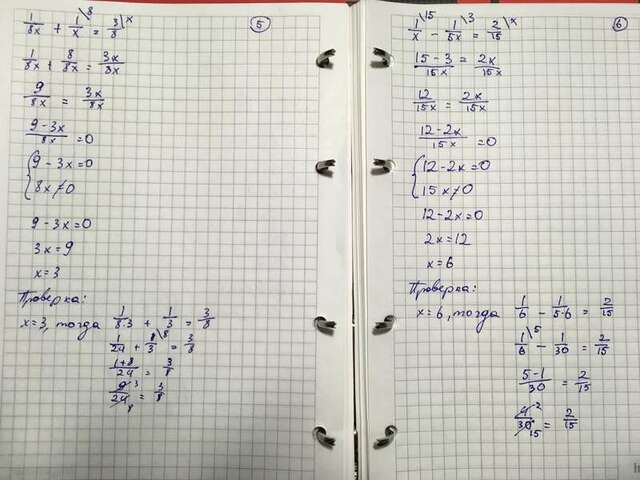 5
1/8x + 1/x \8 = 3/8 \x
1/8x + 8/8x = 3x/8x
9/8x = 3x/8x
9-3x/8x = 0
{ 9-3x=0
8x≠0
9-3x=0
3x=9
x=3
Проверка:
x=3, тогда 1/8·3 + 1/3 = 3/8
1/24 + 1/3 \8 = 3/8
1+8/24 = 3/8
9/24 3/8 = 3/8
6
1/x \15 - 1/5x \3 = 2/15 \x
15-3/15x = 2x/15x
12/15x = 2x/15x
12-2x/15x = 0
{ 12-2x=0
15x≠0
12-2x=0
2x=12
x=6
Проверка:
x=6, тогда 1/6 - 1/5·6 = 2/15
1/6 \5 - 1/30 = 2/15
5-1/30 = 2/15
4/30 2/15 = 2/15